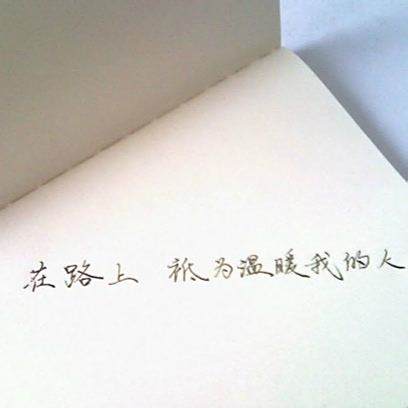 在路上 祗为温暖我的人